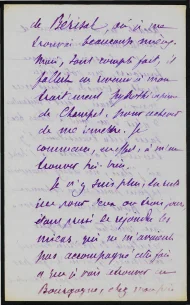 de Bérisal, où je me
trouvai beaucoup mieux.
Mais, tout compte fait, il
fallut en revenir à mon
traitement hydrothérapique
de Champel, pour achever
de me remettre. Je
commence, en effet, à m'en
trouver très bien.
Je n'y suis plus
pour deux ou trois jours,
de rejoindre les
miens, qui ne m'avaient
pas accompagné cette fois
et que je vais retrouver en
Bourgogne, chez